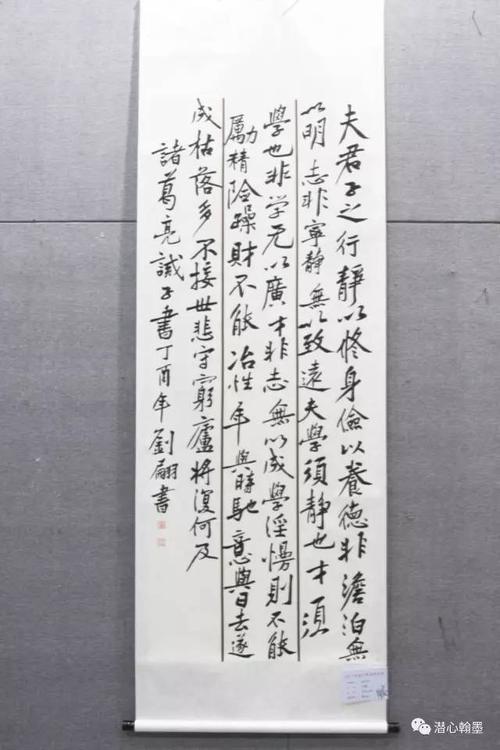 夫君子之行靜以修身儉以養德非澹泊無
以明志非寧靜無以致遠夫學須靜也才須
學也非学无以廣才非志無以成學淫慢則不能
勵精險躁財不能冶性年與時馳意與日去遂
成枯落多不接世悲守窮廬將復何及
諸葛亮誡子書丁酉年劉翩書
潜心翰墨